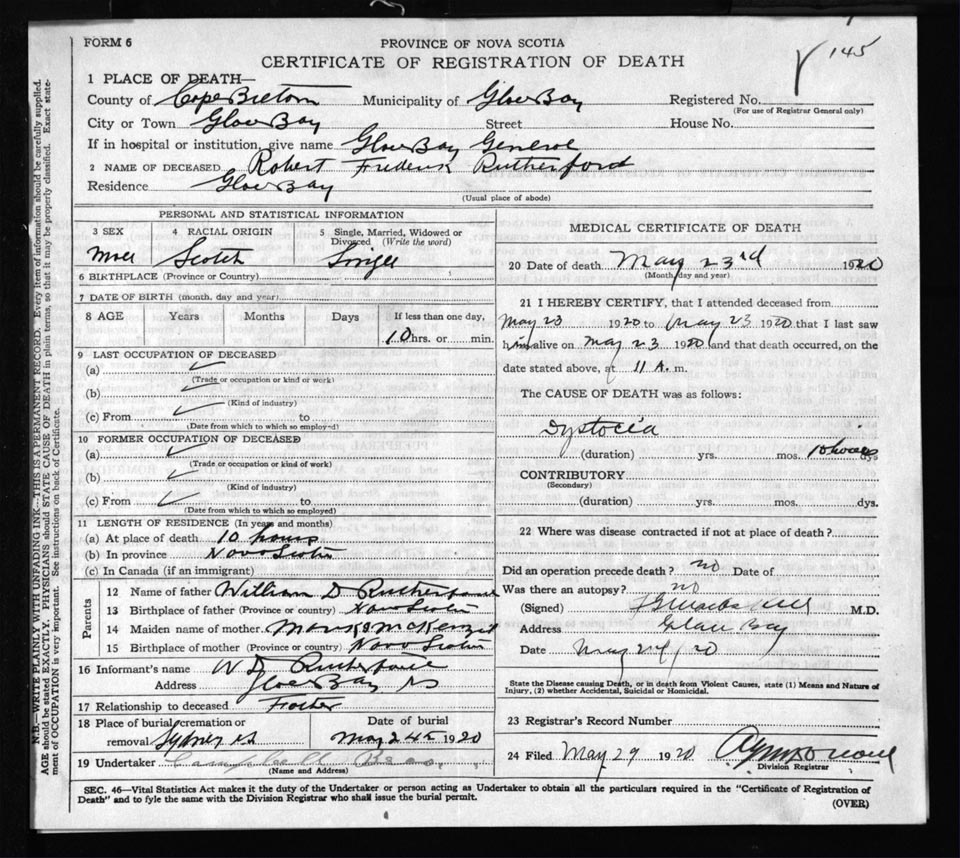 FORM 6
PROVINCE OF NOVA SCOTIA
CERTIFICATE OF REGISTRATION OF DEATH
145
1 PLACE OF DEATH—
County of Cape Breton Municipality of Glace Bay Registered No.
(For use of Registrar General only)
City or Town Glace Bay Street House No.
If in hospital or institution, give name Glace Bay General
2 NAME OF DECEASED Robert Frederick Rutherford
Residence Glace Bay
(Usual place of abode)
PERSONAL AND STATISTICAL INFORMATION
3 SEX 4 RACIAL ORIGIN 5 Single, Married, Widowed or Divorced (Write the word)
Male Scotch Single
6 BIRTHPLACE (Province or Country)
7 DATE OF BIRTH (month, day and year)
8 AGE Years Months Days If less than one day,
10 hrs. or min.
9 LAST OCCUPATION OF DECEASED
(a)
(Trade or occupation or kind or work)
(b)
(Kind of industry)
(c) From to
(Date from which to which so employed)
10 FORMER OCCUPATION OF DECEASED
(a)
(Trade or occupation or kind of work)
(b)
(Kind of industry)
(c) From to
(Date from which to which so employed)
11 LENGTH OF RESIDENCE (In years and months)
(a) At place of death 10 hours
(b) In province Nova Scotia
(c) In Canada (if an immigrant)
Parents
12 Name of father William D Rutherford
13 Birthplace of father (Province or country) Nova Scotia
14 Maiden name of mother McKenzie
15 Birthplace of mother (Province or country) Nova Scotia
16 Informant's name W D Rutherford
Address Glace Bay NS
17 Relationship to deceased Father
18 Place of burial, cremation or removal Sydney NS
Date of burial May 24th 1920
19 Undertaker Campbell
(Name and Address)
MEDICAL CERTIFICATE OF DEATH
20 Date of death May 23rd 1920
(Month, day and year)
21 I HEREBY CERTIFY, that I attended deceased from
May 23 1920 to May 23 1920 that I last saw
him alive on May 23 1920 and that death occurred, on the
date stated above, at 11 A. m.
The CAUSE OF DEATH was as follows:
Dystocia
(duration) yrs. mos. 10 hours dys.
CONTRIBUTORY
(Secondary)
(duration) yrs. mos. dys.
22 Where was disease contracted if not at place of death?
Did an operation precede death? no Date of
Was there an autopsy? no
(Signed) M.D.
Address Glace Bay
Date May 24/20
State the Disease causing Death, or in death from Violent Causes, state (1) Means and Nature of
Injury, (2) whether Accidental, Suicidal or Homicidal.
23 Registrar's Record Number
24 Filed May 29 1920
Division Registrar
SEC. 46—Vital Statistics Act makes it the duty of the Undertaker or person acting as Undertaker to obtain all the particulars required in the "Certificate of Registration of
Death" and to fyle the same with the Division Registrar who shall issue the burial permit.
(OVER)
N.B.—WRITE PLAINLY WITH UNFADING INK—THIS IS A PERMANENT RECORD. Every item of information should be carefully supplied.
AGE should be stated EXACTLY. PHYSICIANS should STATE CAUSE OF DEATH in plain terms, so that it may be properly classified. Exact state-
ment of OCCUPATION is very important. See instructions on back of Certificate.